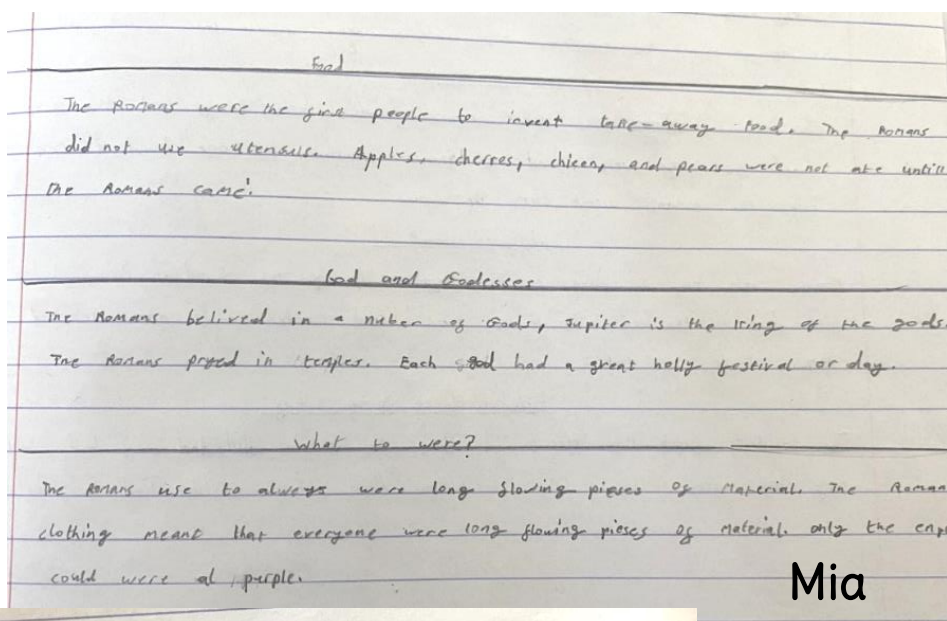 Food
The Romans were the first people to invent take-away food. The Romans
did not use utensuls. Apples, cherres, chicen, and pears were not ate untill
the Romans came.
God and Godesses
The Romans belived in a nuber of Gods, Jupiter is the king of the gods
The Romans pryed in temples. Each god had a great holly festival or day.
What to were?
The Romans use to always were long flowing pieses of material. The Roman
clothing meant that everyone were long flowing pieses of material. only the
could were al purple.
Mia